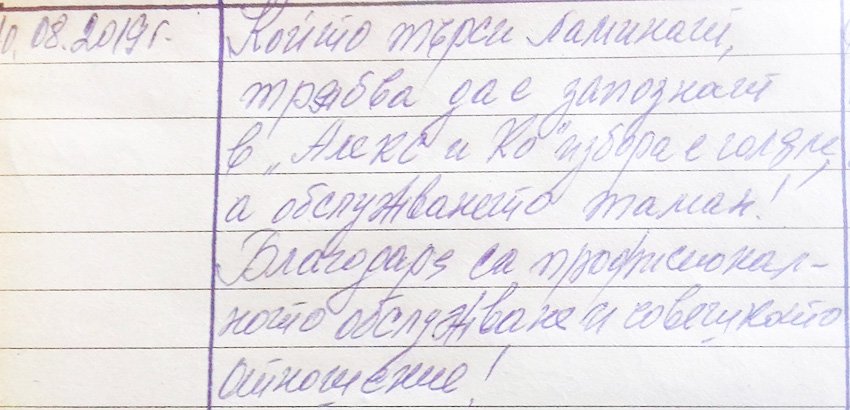 10.08.2019г. Който търси ламинат,
трябва да е запознат
в „Алекс и Ко“ избора е голям,
а обслужването таман!
Благодаря за професионал-
ното обслужване и човешкото
отношение!